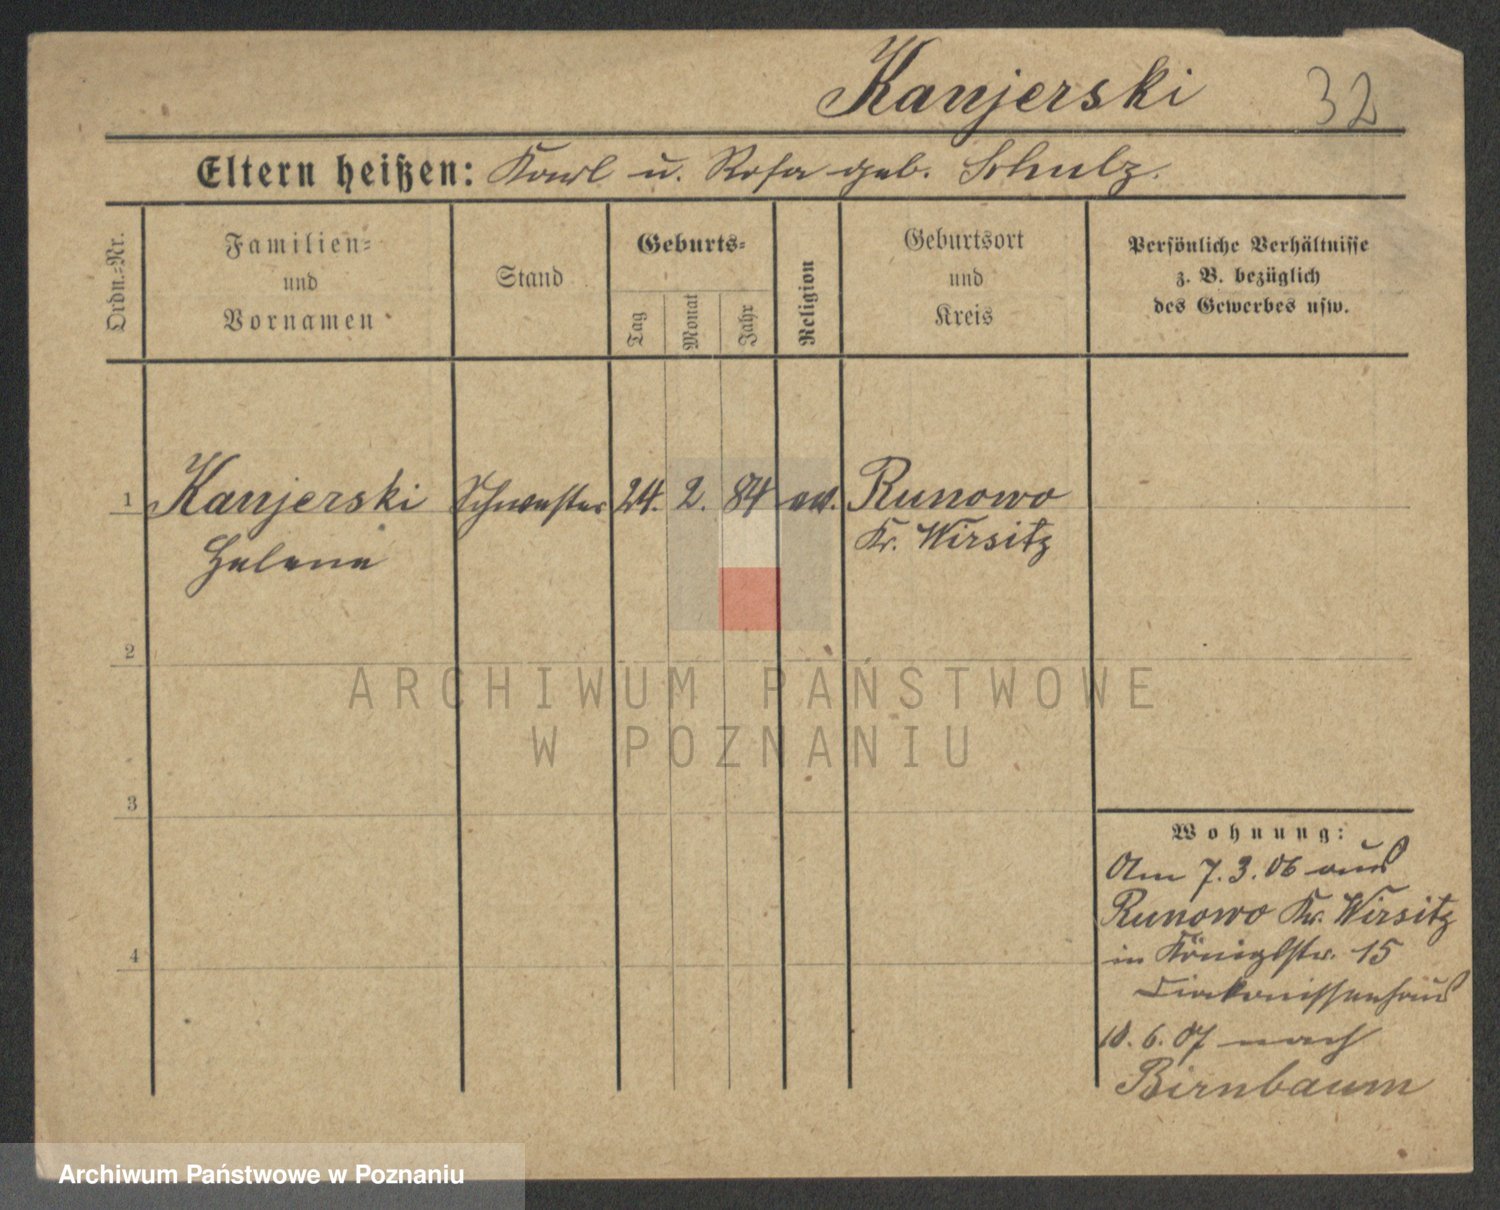 Kanjerski 32
Eltern heißen: Karl u. Rosa geb. Schulz.
Ordn.-Nr.
Familien-
und
Vornamen
Stand
Geburts-
Tag
Monat
Jahr
Religion
Geburtsort
und
Kreis
Persönliche Verhältnisse
z. B. bezüglich
des Gewerbes usw.
1 Kanjerski Schwester 24. 2. 84 ev. Runowo
Helene Kr. Wirsitz
2
ARCHIWUM PAŃSTWOWE
W POZNANIU
3
Wohnung:
Am 7.3.06 aus
Runowo Kr. Wirsitz
4
in Königstr. 15
Diakonissenhaus
10.6.07 nach
Birnbaum
Archiwum Państwowe w Poznaniu